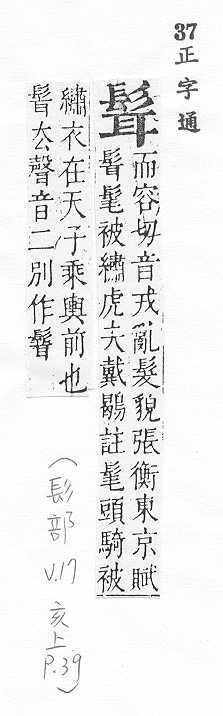 37 正字通
髶
而容切音戎亂髮貌張衡東京賦
髶髦被繡虎夫戴鶡註髦頭騎被
繡衣在天子乘輿前也
髶厺聲音二別作
(髟部 V.17 亥上 P.39)